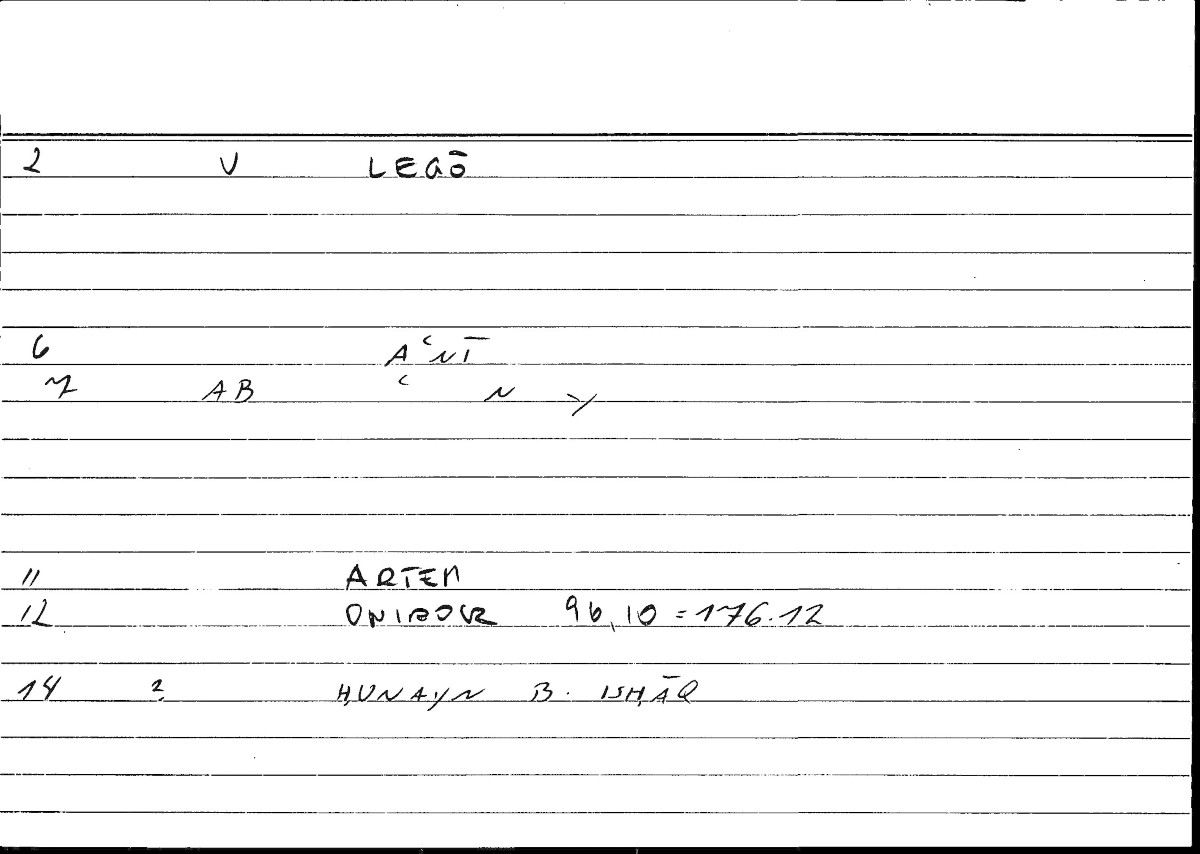 2 V LEGŌ
6 AʿNĪ
7 AB ʿ N Y
11 ARTEM
12 ONIROCR 96,10 = 176.12
14 ? ḤUNAYN B. ISḤĀQ